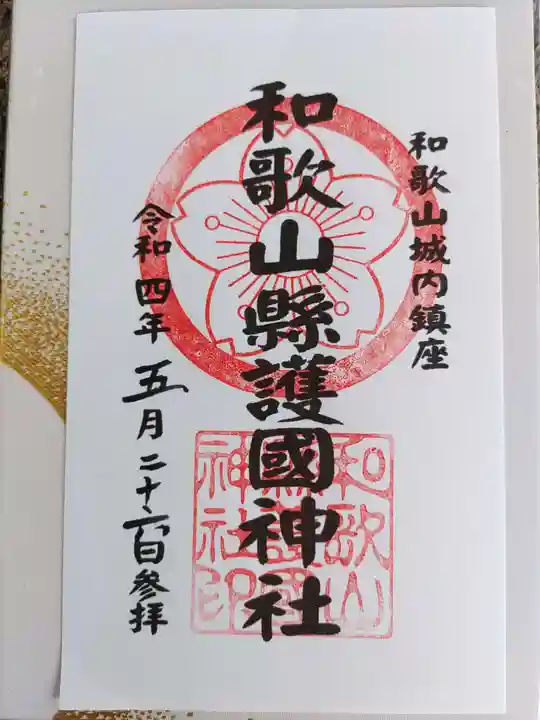 和歌山城内鎮座
和歌山縣護國神社
令和四年五月二十六日参拝
和歌山
縣護國
神社印